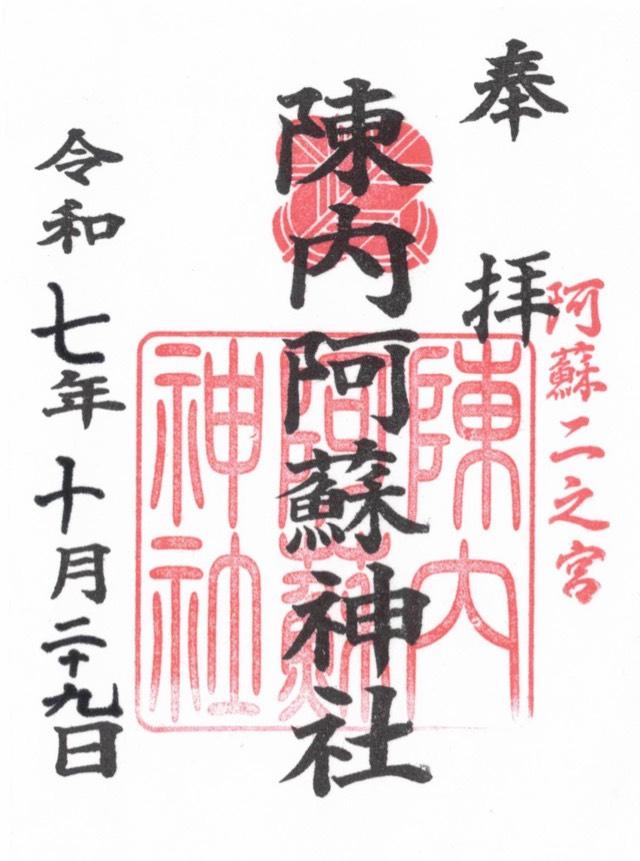 奉拝
阿蘇二之宮
陳内阿蘇神社
陳内
阿蘇
神社
令和七年十月二十九日